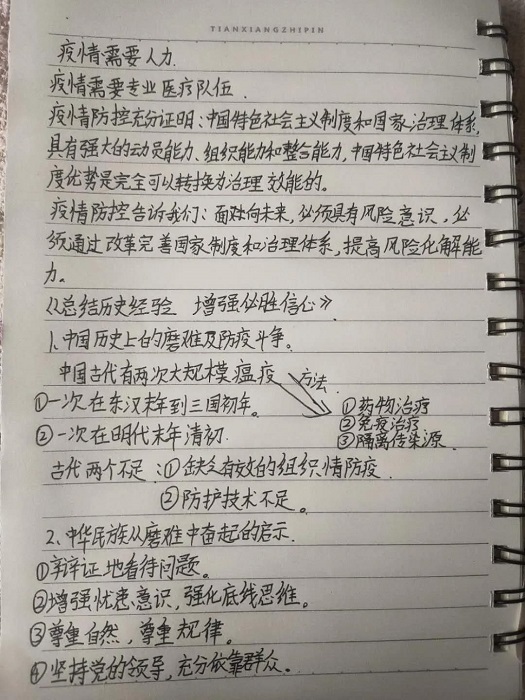 TIANXIANGZHIPIN
疫情需要人力.
疫情需要专业医疗队伍.
疫情防控充分证明:中国特色社会主义制度和国家治理体系,
具有强大的动员能力、组织能力和整合能力,中国特色社会主义制
度优势是完全可以转换为治理效能的。
疫情防控告诉我们:面对向未来,必须具有风险意识,必
须通过改革完善国家制度和治理体系,提高风险化解能
力。
《总结历史经验 增强必胜信心》
1、中国历史上的磨难及防疫斗争。
中国古代有两次大规模瘟疫 方法
①一次在东汉末年到三国初年。 ①药物治疗
②一次在明代末年清初. ②免疫治疗
③隔离传染源.
古代两个不足:①缺乏有效的组织情防疫.
②防护技术不足。
2、中华民族从磨难中奋起的启示.
①辩证地看待问题。
②增强忧患意识,强化底线思维。
③尊重自然,尊重规律。
④坚持党的领导,充分依靠群众.